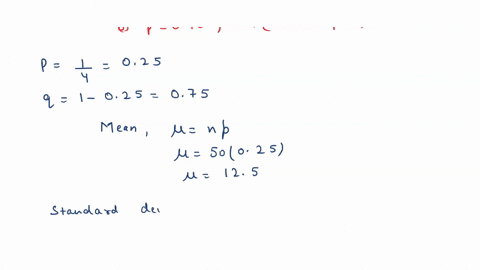 P = 1/4 = 0.25
q = 1 - 0.25 = 0.75
Mean, μ = np
μ = 50(0.25)
μ = 12.5
Standard de